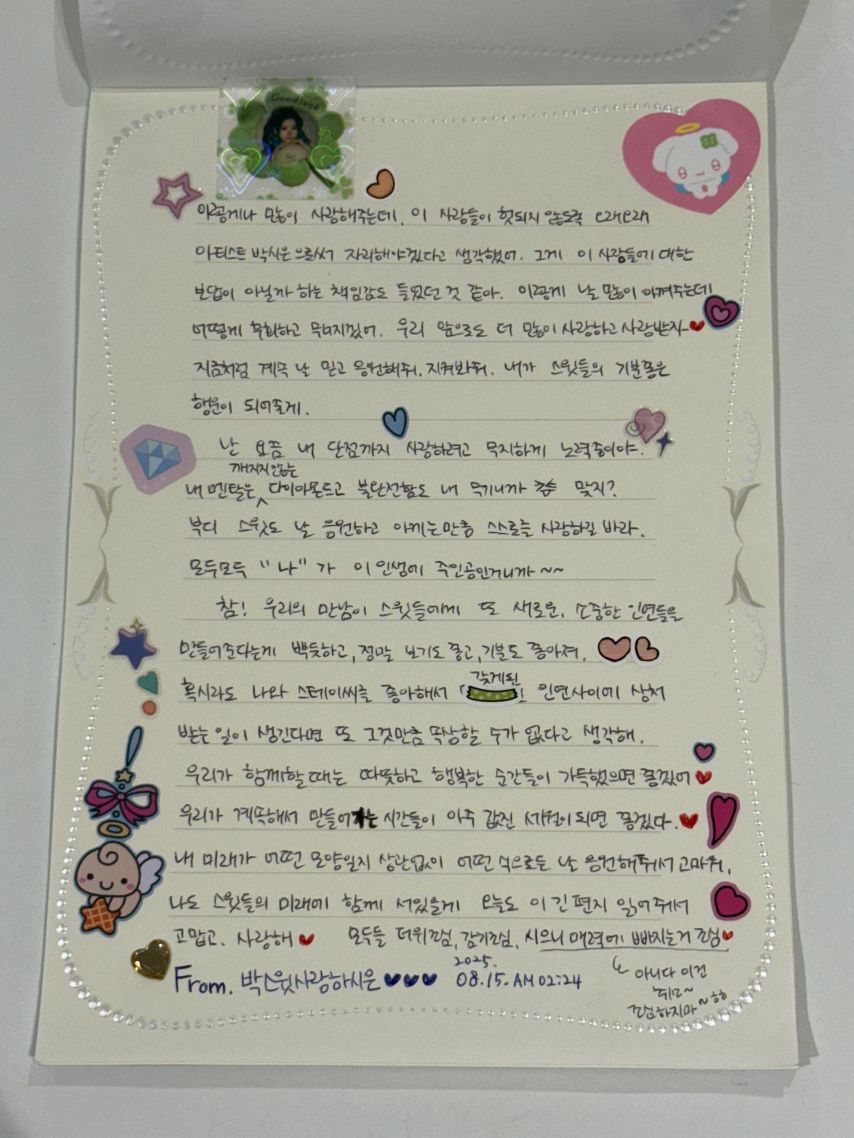 Good luck
이렇게나 많이 사랑해주는데, 이 사랑들이 헛되지 않도록 단단한
아티스트 박시은으로써 자리해야겠다고 생각했어. 그게 이 사랑들에 대한
보답이 아닐까 하는 책임감도 들었던 것 같아. 이렇게 날 많이 아껴주는데
어떻게 무화하고 무너지겠어. 우리 앞으로도 더 많이 사랑하고 사랑받자
지금처럼 계속 날 믿고 응원해줘, 지켜봐줘. 내가 스윗들의 기분좋은
행운이 되어줄게.
난 요즘 내 단점까지 사랑하려고 무지하게 노력중이야.
깨지지않는
내 멘탈은 다이아몬드고 불완전함도 내 무기니까 맞지?
부디 스윗도 날 응원하고 아끼는만큼 스스로를 사랑하길 바라.
모두모두 "나"가 이 인생에 주인공인거니까~~
참! 우리의 만남이 스윗들에게 또 새로운, 소중한 인연들을
만들어준다는게 뿌듯하고, 정말 보기도 좋고, 기분도 좋아져.
갖게된
혹시라도 나와 스테이씨를 좋아해서 인연사이에 상처
받는 일이 생긴다면 또 그것만큼 속상할 수가 없다고 생각해.
우리가 함께할 때는 따뜻하고 행복한 순간들이 가득했으면 좋겠어
우리가 계속해서 만들어가는 시간들이 아주 값진 세월이 되면 좋겠다.
내 미래가 어떤 모양일지 상관없이 어떤 식으로든 날 응원해줘서 고마워,
나도 스윗들의 미래에 함께 서있을게 오늘도 이 긴 편지 읽어줘서
고맙고. 사랑해 모두들 더위조심, 감기조심, 시으니 매력에 빠지는거 조심
From. 박스윗사랑하시은 2025. 08.15. AM 02:24
아니다 이건
조심하지마~ㅎㅎ